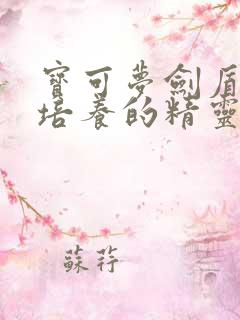 寶可夢劍盾
培養的精靈
蘇荇